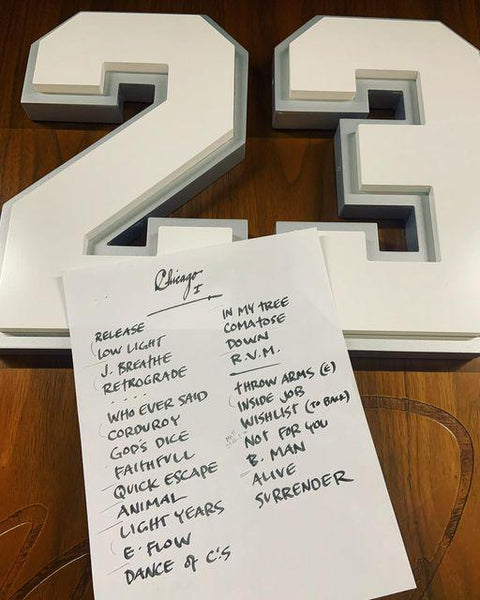 23
Chicago
I
RELEASE
LOW LIGHT
J. BREATHE
RETROGRADE
WHO EVER SAID
CORDUROY
GOD'S DICE
FAITHFULL
QUICK ESCAPE
ANIMAL
LIGHT YEARS
E. FLOW
DANCE of C'S
IN MY TREE
COMATOSE
DOWN
R.V.M.
THROW ARMS (E)
INSIDE JOB
WISHLIST (TO BACK)
NOT FOR YOU
B. MAN
ALIVE
SURRENDER